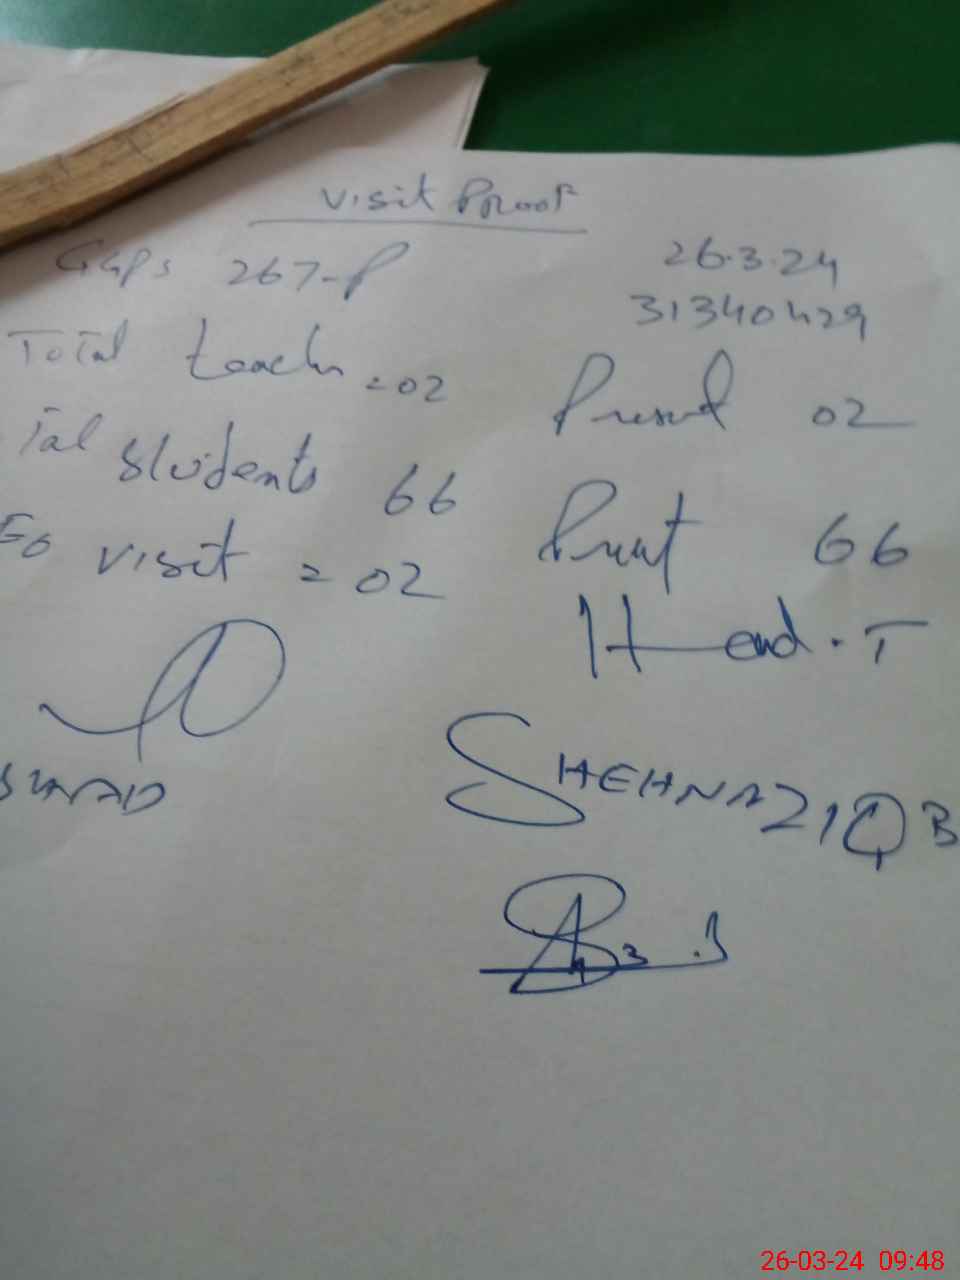 Visit Proof
GGPS 267-P 26.3.24
31340429
Total teacher = 02 Present 02
Total students 66 Present 66
EO visit = 02
Head.T
SHEHNAZ IQB
26-03-24 09:48